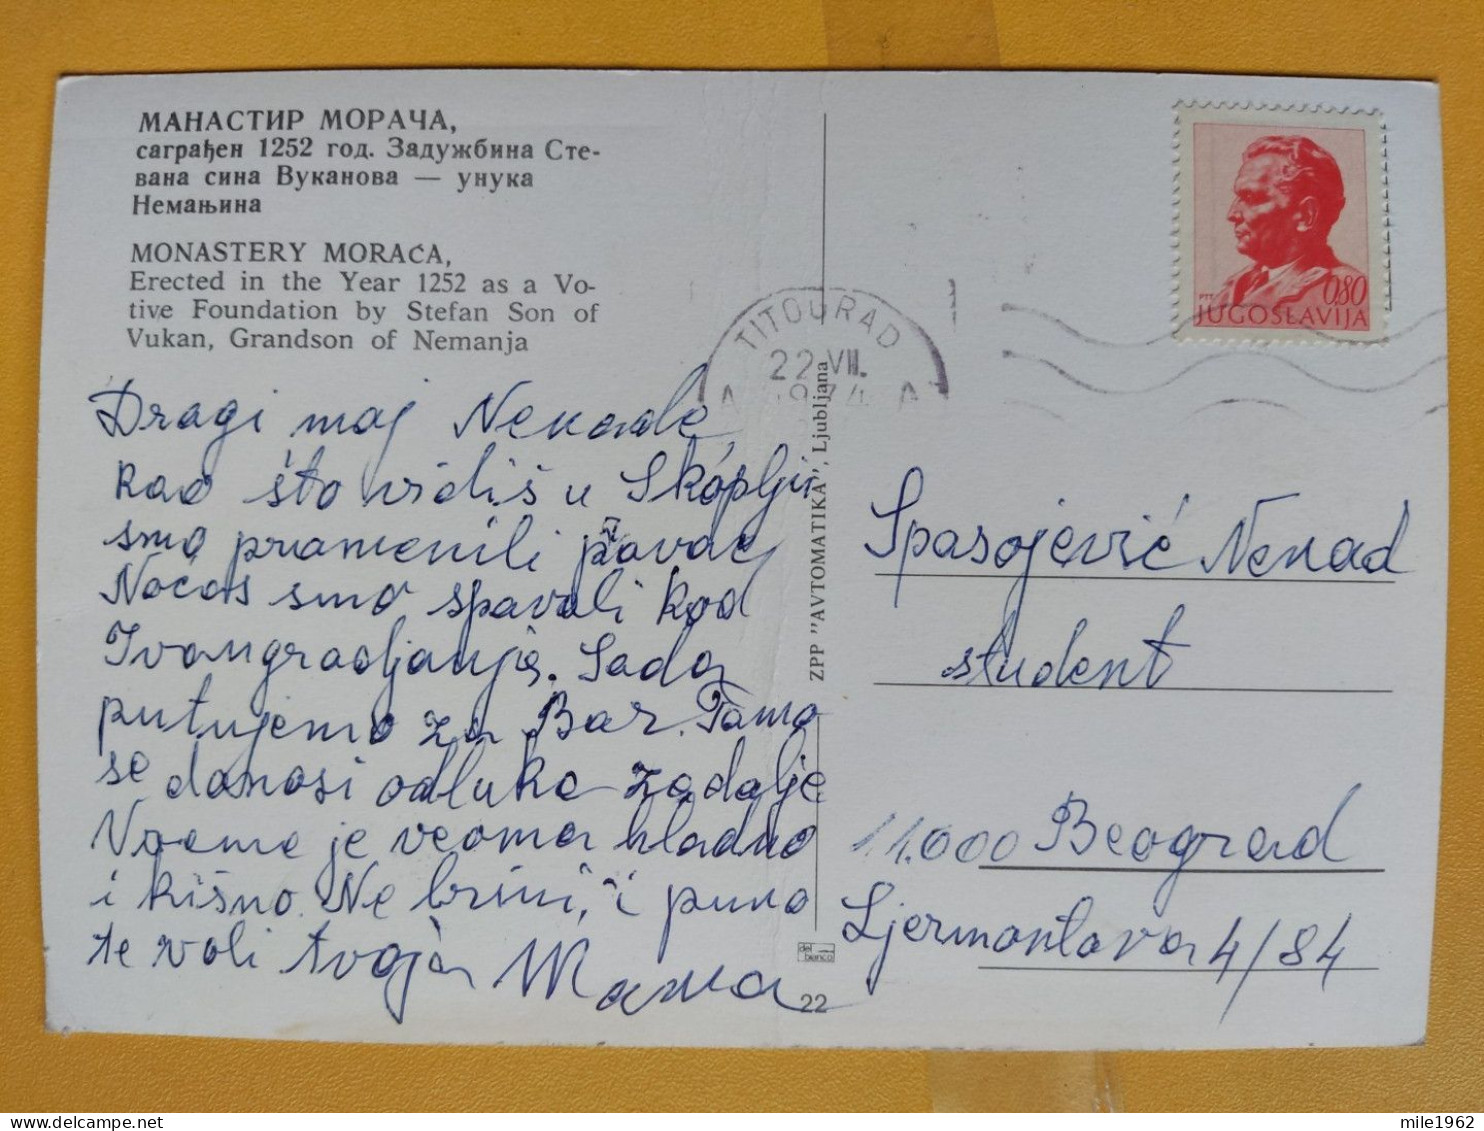 МАНАСТИР МОРАЧА,
саграђен 1252 год. Задужбина Сте-
вана сина Вуканова — унука
Немањина
MONASTERY MORAČA,
Erected in the Year 1252 as a Vo-
tive Foundation by Stefan Son of
Vukan, Grandson of Nemanja
Dragi moj Nenade
kao što vidiš u Skoplju
smo promenili pravac
Noćas smo spavali kod
Ivangradjanja. Sada
putujemo za Bar. Tamo
se donosi odluka za dalje
Vreme je veoma hladno
i kišno. Ne brini, i puno
te voli tvoja Mama
TITOGRAD
22 VII.
A 1974 A
ZPP "AVTOMATIKA", Ljubljana
del bianco
22
PTT
0,80
JUGOSLAVIJA
Spasojević Nenad
student
11.000 Beograd
Ljermontova 4/84
mile1962